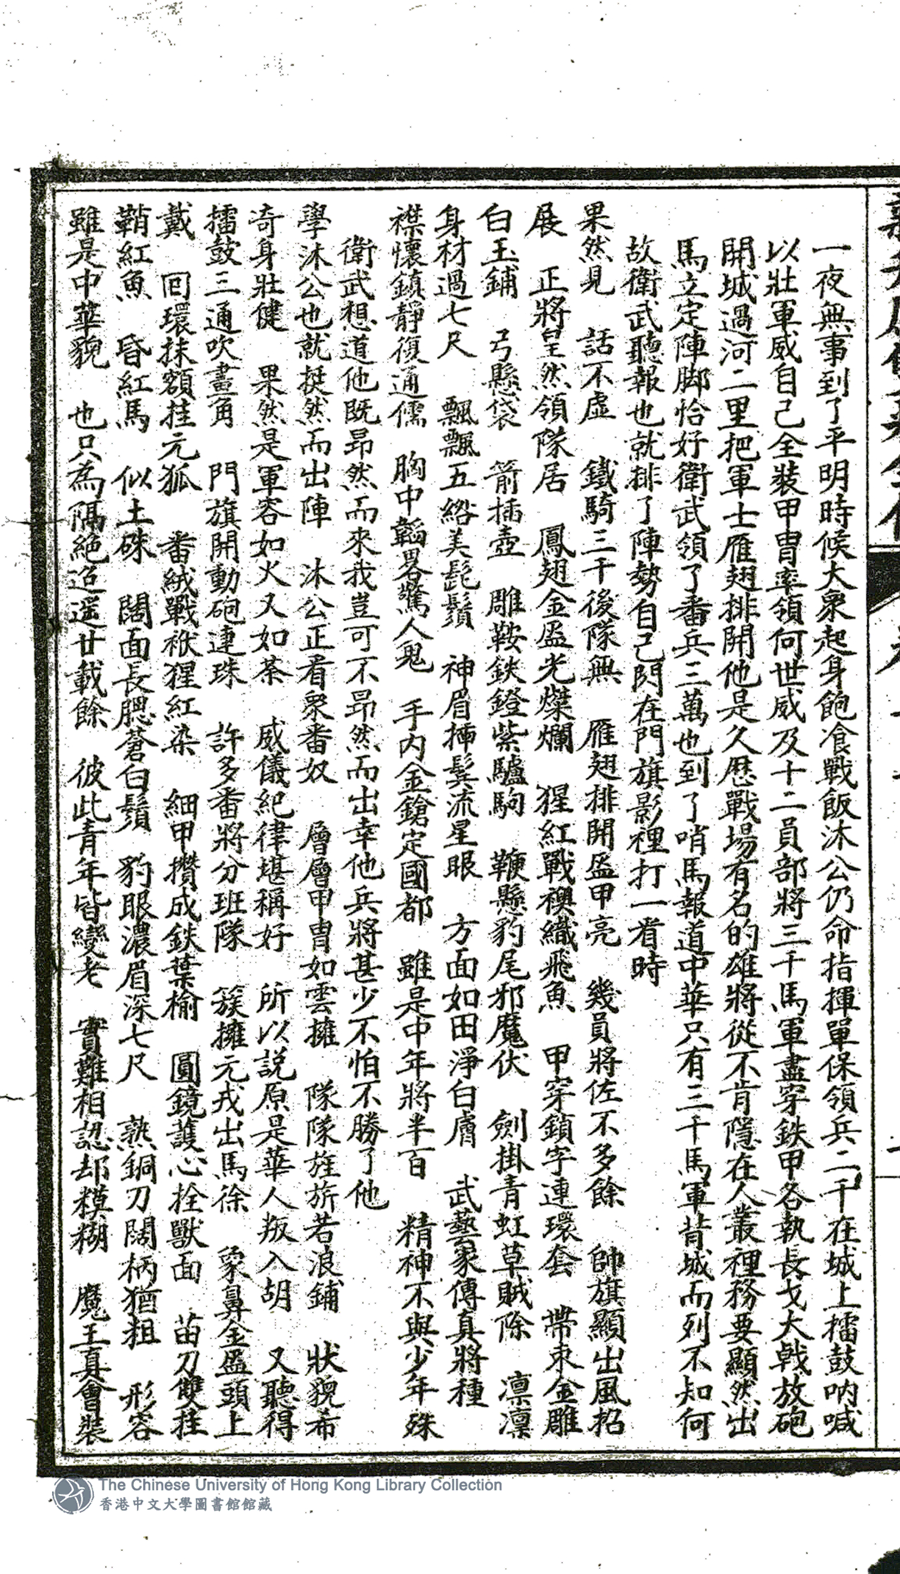 一夜無事到了平明時候大衆起身飽飡戰飯沐公仍命指揮單保領兵二千在城上擂鼓吶喊
以壯軍威自己全裝甲冑率領何世威及十二員部將三千馬軍盡穿鉄甲各執長戈大戟放砲
開城過河二里把軍士雁翅排開他是久厯戰場有名的雄將從不肯隱在人叢裡務要顯然出
馬立定陣脚恰好衛武領了番兵三萬也到了哨馬報道中華只有三千馬軍背城而列不知何
故衛武聽報也就排了陣勢自己閃在門旗影裡打一看時
果然見 話不虛 鐵騎三千後隊無 雁翅排開盔甲亮 幾員將佐不多餘 帥旗顯出風招
展 正將皇然領隊居 鳳翅金盔光燦爛 猩紅戰襖織飛魚 甲穿鎖字連環套 帶束金雕
白玉鋪 弓懸袋 箭插壺 雕鞍鉄鐙紫驢駒 鞭懸豹尾邪魔伏 劍掛青虹草賊除 凛凛
身材過七尺 飄飄五綹美髭鬚 神眉插鬓流星眼 方面如田淨白膚 武藝家傳真將種
襟懷鎮靜復通儒 胸中韜畧驚人鬼 手內金鎗定國都 雖是中年將半百 精神不與少年殊
衛武想道他既昻然而來我豈可不昻然而出幸他兵將甚少不怕不勝了他
學沐公也就挺然而出陣 沐公正看衆番奴 層層甲冑如雲擁 隊隊旌旂若浪鋪 狀貌布
奇身壯健 果然是軍容如火又如荼 威儀紀律堪稱好 所以説原是華人叛入胡 又聽得
擂鼓三通吹畫角 門旗開動砲連珠 許多番將分班隊 簇擁元戎出馬徐 象鼻金盔頭上
戴 回環抹額挂元狐 番絨戰袱猩紅染 細甲攢成鉄葉榆 圓鏡護心拴獸面 苗刀雙挂
鞘紅魚 昏紅馬 似土硃 闊面長腮蒼白鬚 豹眼濃眉深七尺 熟銅刀闊柄猶粗 形容
雖是中華貌 也只為隔絶迢遥廿載餘 彼此青年皆變老 實難相認却糢糊 魔王真會裝